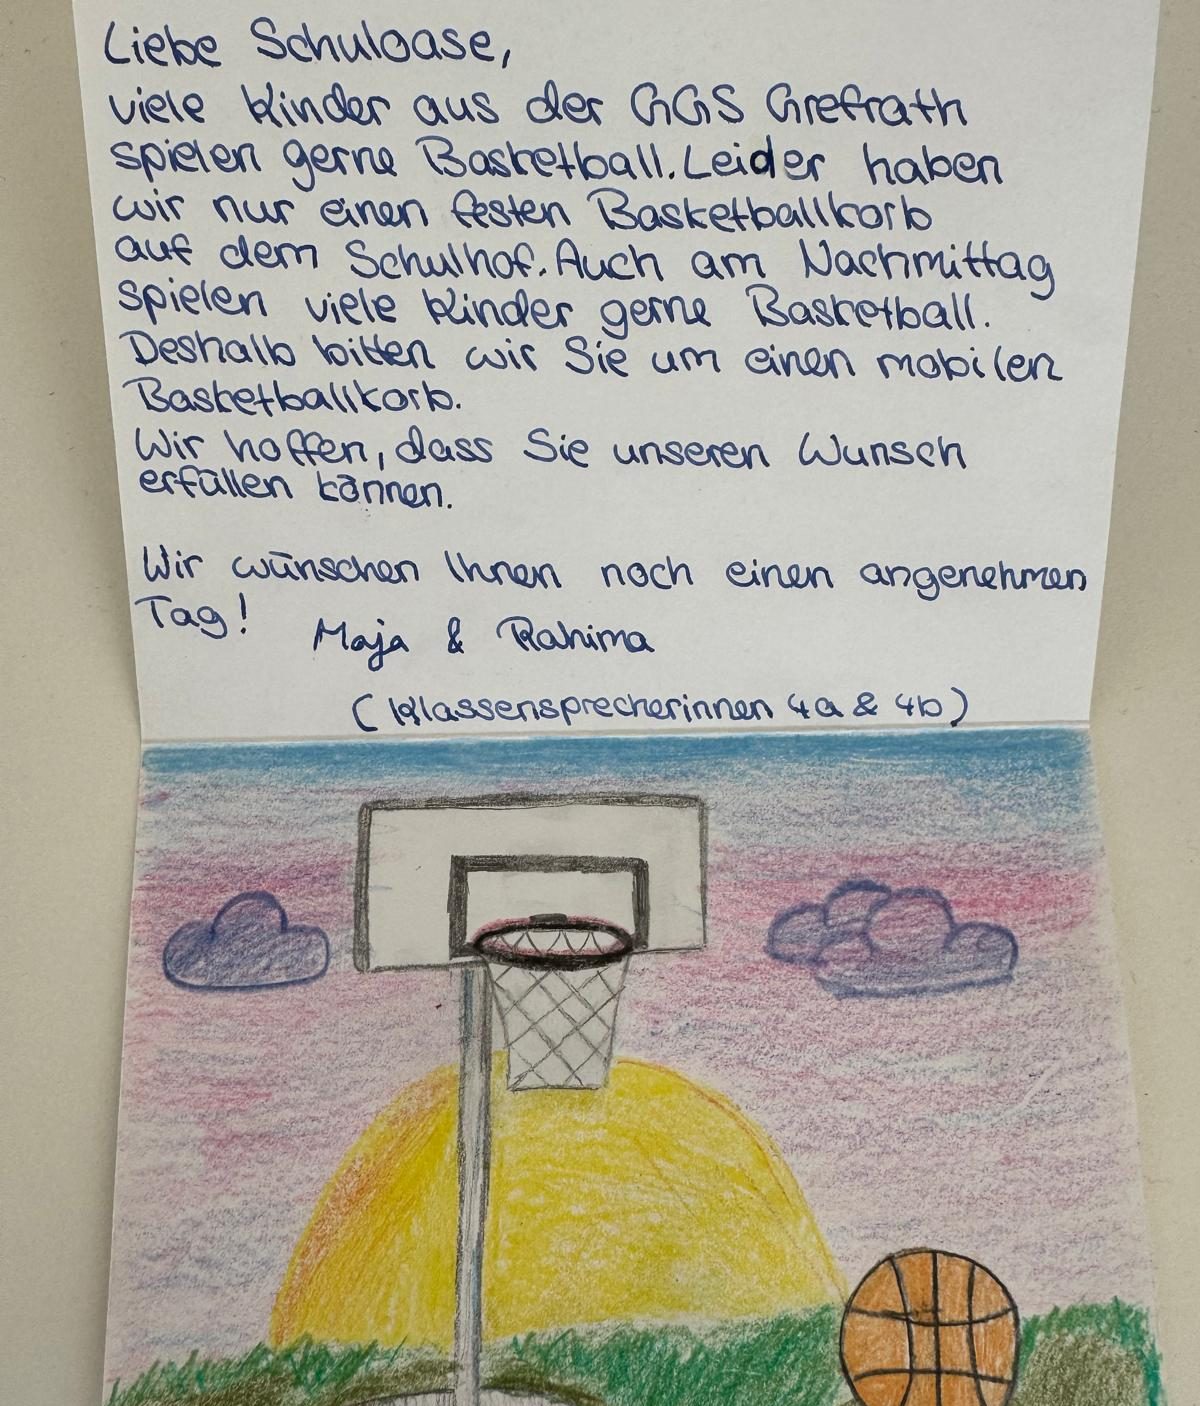 Liebe Schuloase,
viele Kinder aus der GGS Grefrath
spielen gerne Basketball. Leider haben
wir nur einen festen Basketballkorb
auf dem Schulhof. Auch am Nachmittag
spielen viele Kinder gerne Basketball.
Deshalb bitten wir Sie um einen mobilen
Basketballkorb.
Wir hoffen, dass Sie unseren Wunsch
erfüllen können.
Wir wünschen Ihnen noch einen angenehmen
Tag!
Maja & Rahima
(Klassensprecherinnen 4a & 4b)